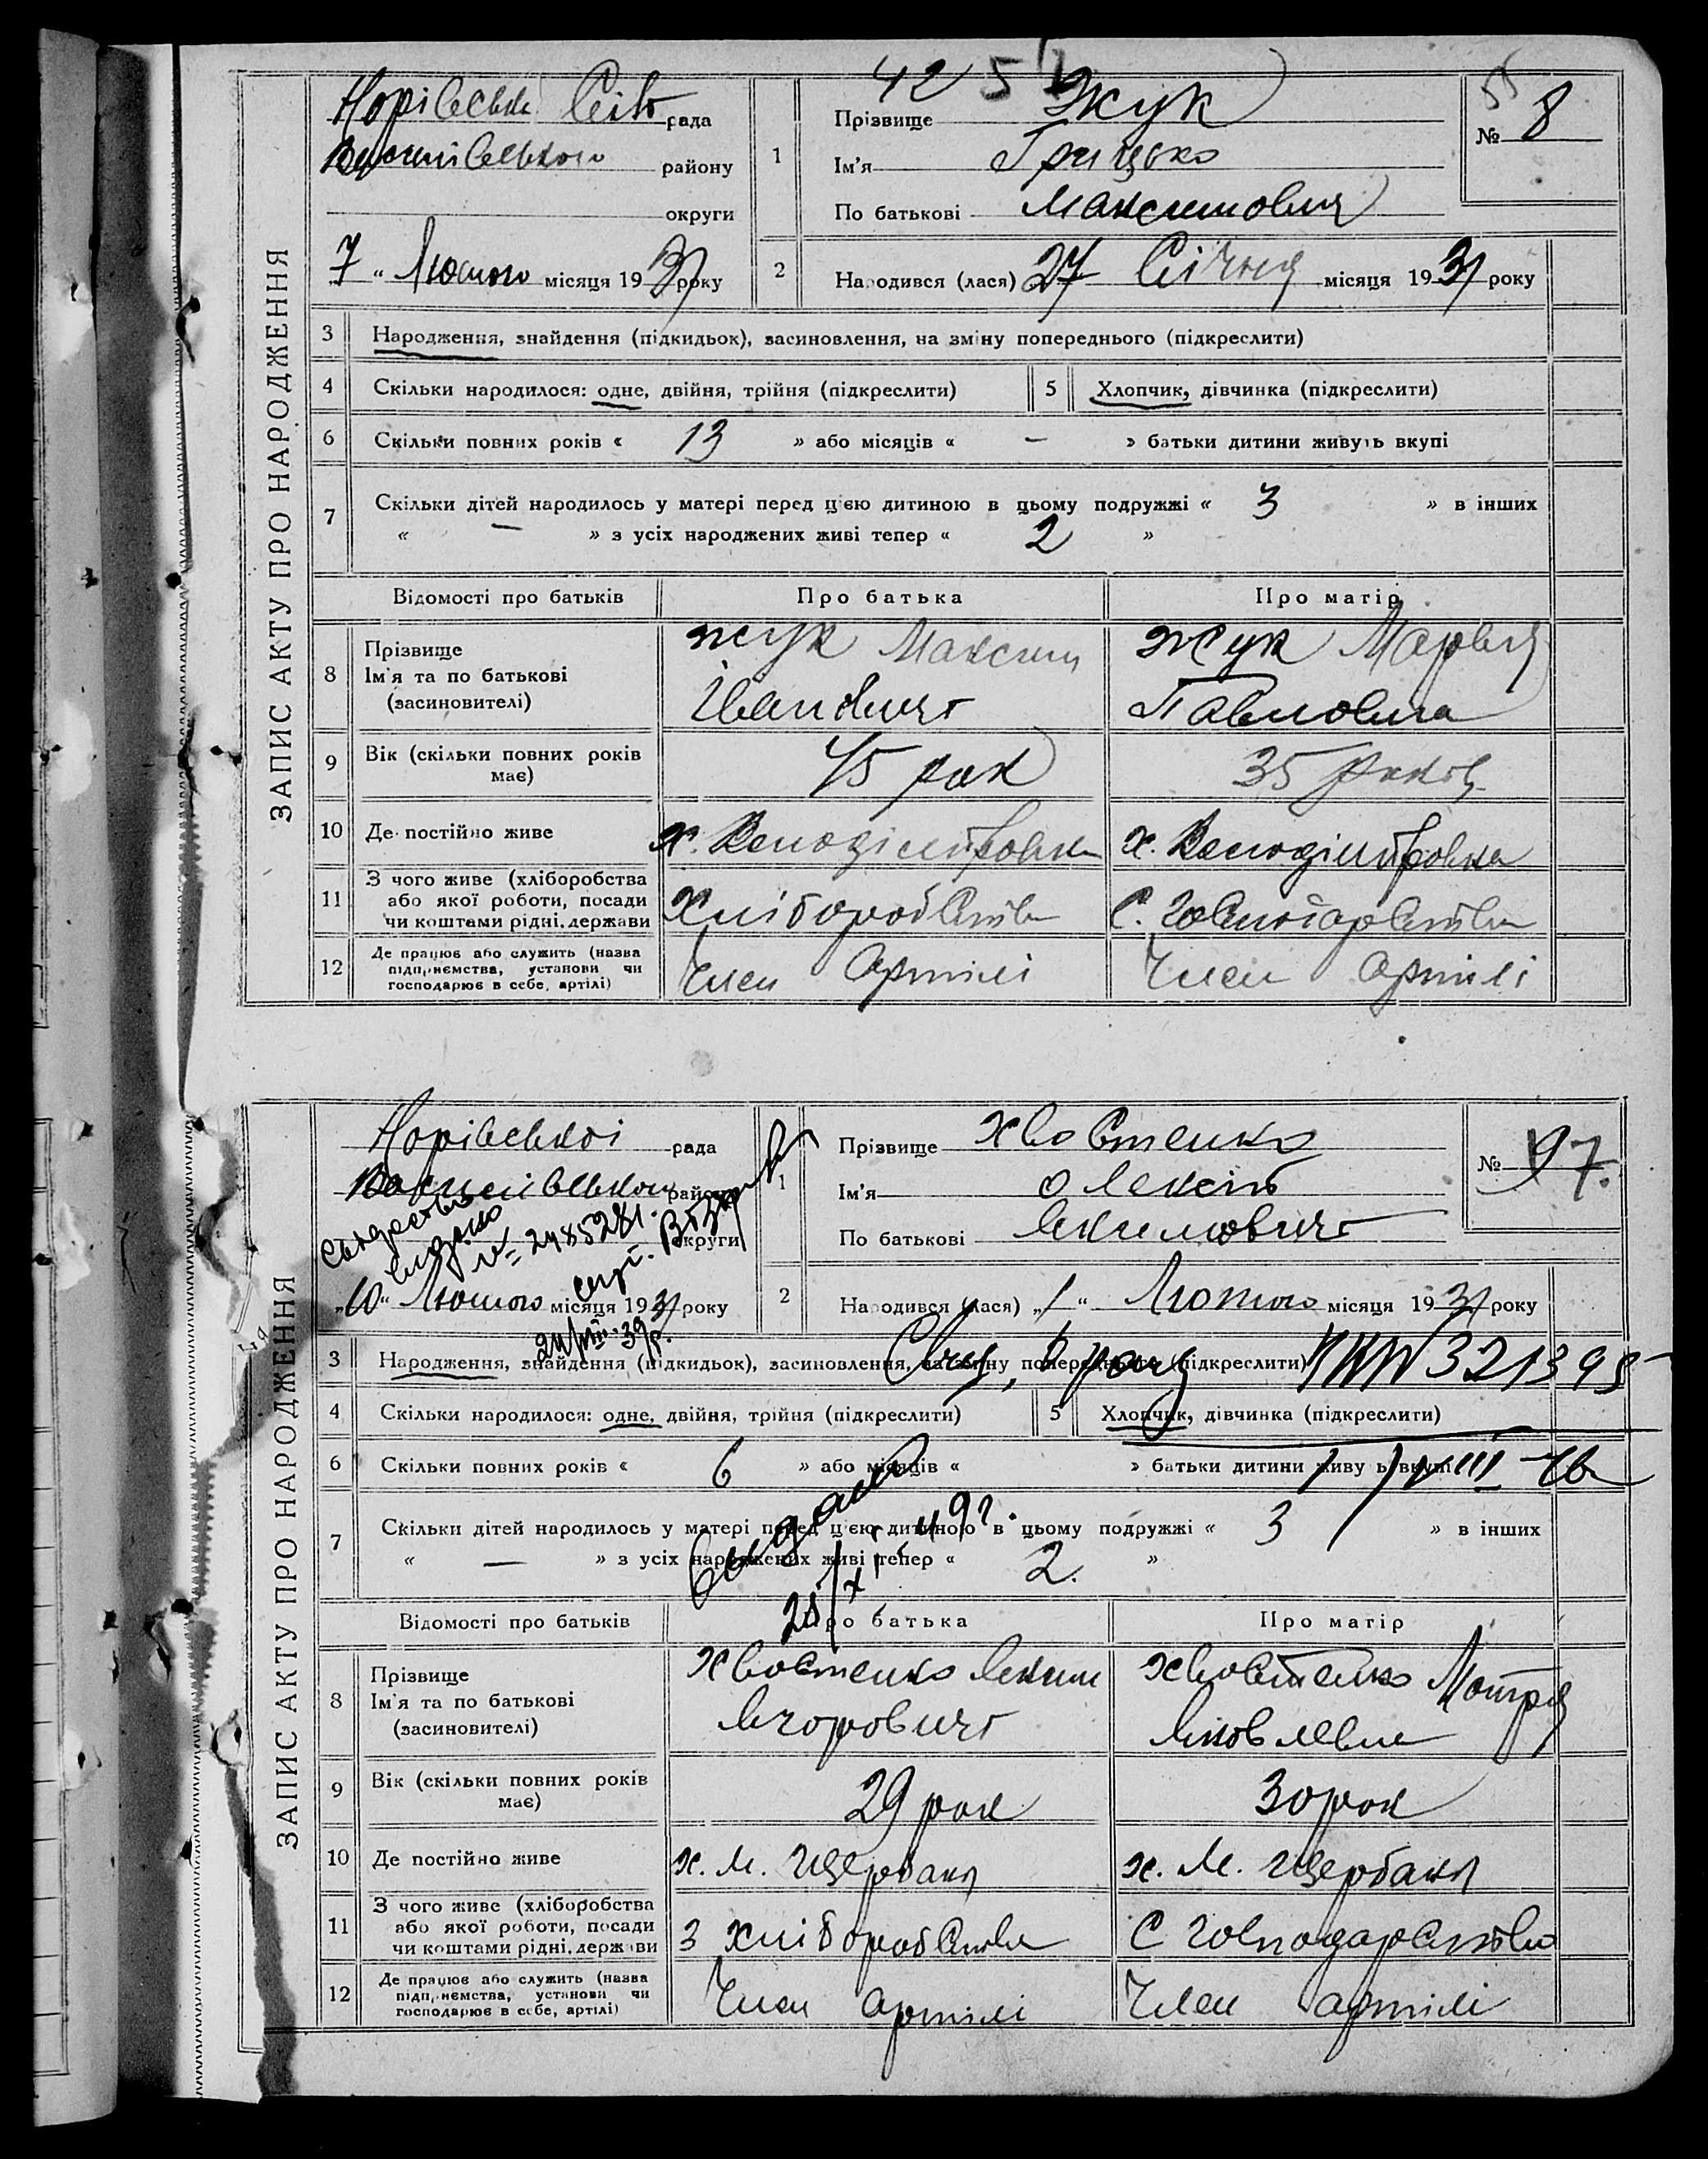 ЗАПИС АКТУ ПРО НАРОДЖЕННЯ
42 5
рада
району
округи
7 " Лютого місяця 1931 року
1
Прізвище Жук
Ім'я Грицько
По батькові Максимович
55
№ 8
2
Народився (лася) 27 Січня місяця 1931 року
3 Народження, знайдення (підкидьок), засиновлення, на зміну попереднього (підкреслити)
4 Скільки народилося: одне, двійня, трійня (підкреслити) 5 Хлопчик, дівчинка (підкреслити)
6 Скільки повних років « 13 » або місяців « — » батьки дитини живуть вкупі
7 Скільки дітей народилось у матері перед цією дитиною в цьому подружжі « 3 » в інших
« — » з усіх народжених живі тепер « 2 »
Відомості про батьків Про батька Про матір
8 Прізвище
Ім'я та по батькові
(засиновителі)
Жук Максим
Іванович
Жук
Павловна
9 Вік (скільки повних років має) 45 рок 35 роков
10 Де постійно живе х. х.
11 З чого живе (хліборобства
або якої роботи, посади
чи коштами рідні, держави
Хліборобства С. Господарства
12 Де працює або служить (назва
підприємства, установи чи
господарює в себе, артілі)
Член Артілі Член Артілі
ЗАПИС АКТУ ПРО НАРОДЖЕННЯ
Норівської рада
району
округи
№ 2485281.
"10" Лютого місяця 1931 року
24/VIII.39р.
1
Прізвище Хвостенко
Ім'я Олексій
По батькові Якимович
№ 97.
2
Народився (лася) „1" Лютого місяця 1931 року
3 Народження, знайдення (підкидьок), засиновлення, на зміну попереднього (підкреслити)
№ 321395
4 Скільки народилося: одне, двійня, трійня (підкреслити) 5 Хлопчик, дівчинка (підкреслити)
6 Скільки повних років « 6 » або місяців « » батьки дитини живуть вкупі
7 Скільки дітей народилось у матері перед цією дитиною в цьому подружжі « 3 » в інших
« — » з усіх народжених живі тепер « 2. »
49г.
Відомості про батьків Про батька Про матір
8 Прізвище
Ім'я та по батькові
(засиновителі)
Хвостенко Яким
Хвостенко Мотря
Яковлевна
9 Вік (скільки повних років має) 29 рок 30 рок
10 Де постійно живе х. М. Щербаки х. М. Щербаки
11 З чого живе (хліборобства
або якої роботи, посади
чи коштами рідні, держави
З хліборобства С Господарства
12 Де працює або служить (назва
підприємства, установи чи
господарює в себе, артілі)
Член артілі Член артілі